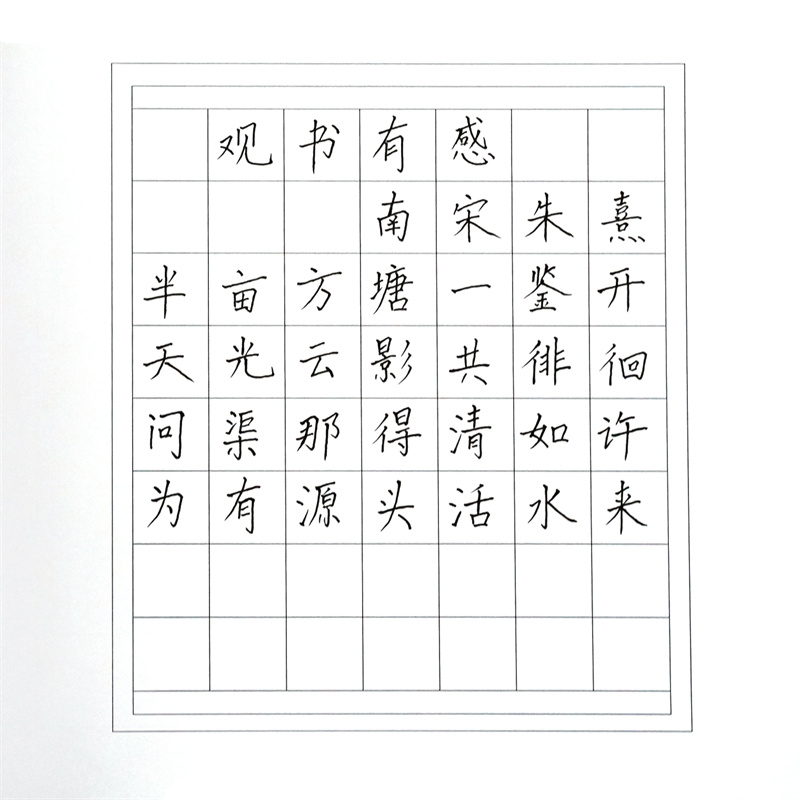 观书有感
南宋朱熹
半亩方塘一鉴开
天光云影共徘徊
问渠那得清如许
为有源头活水来